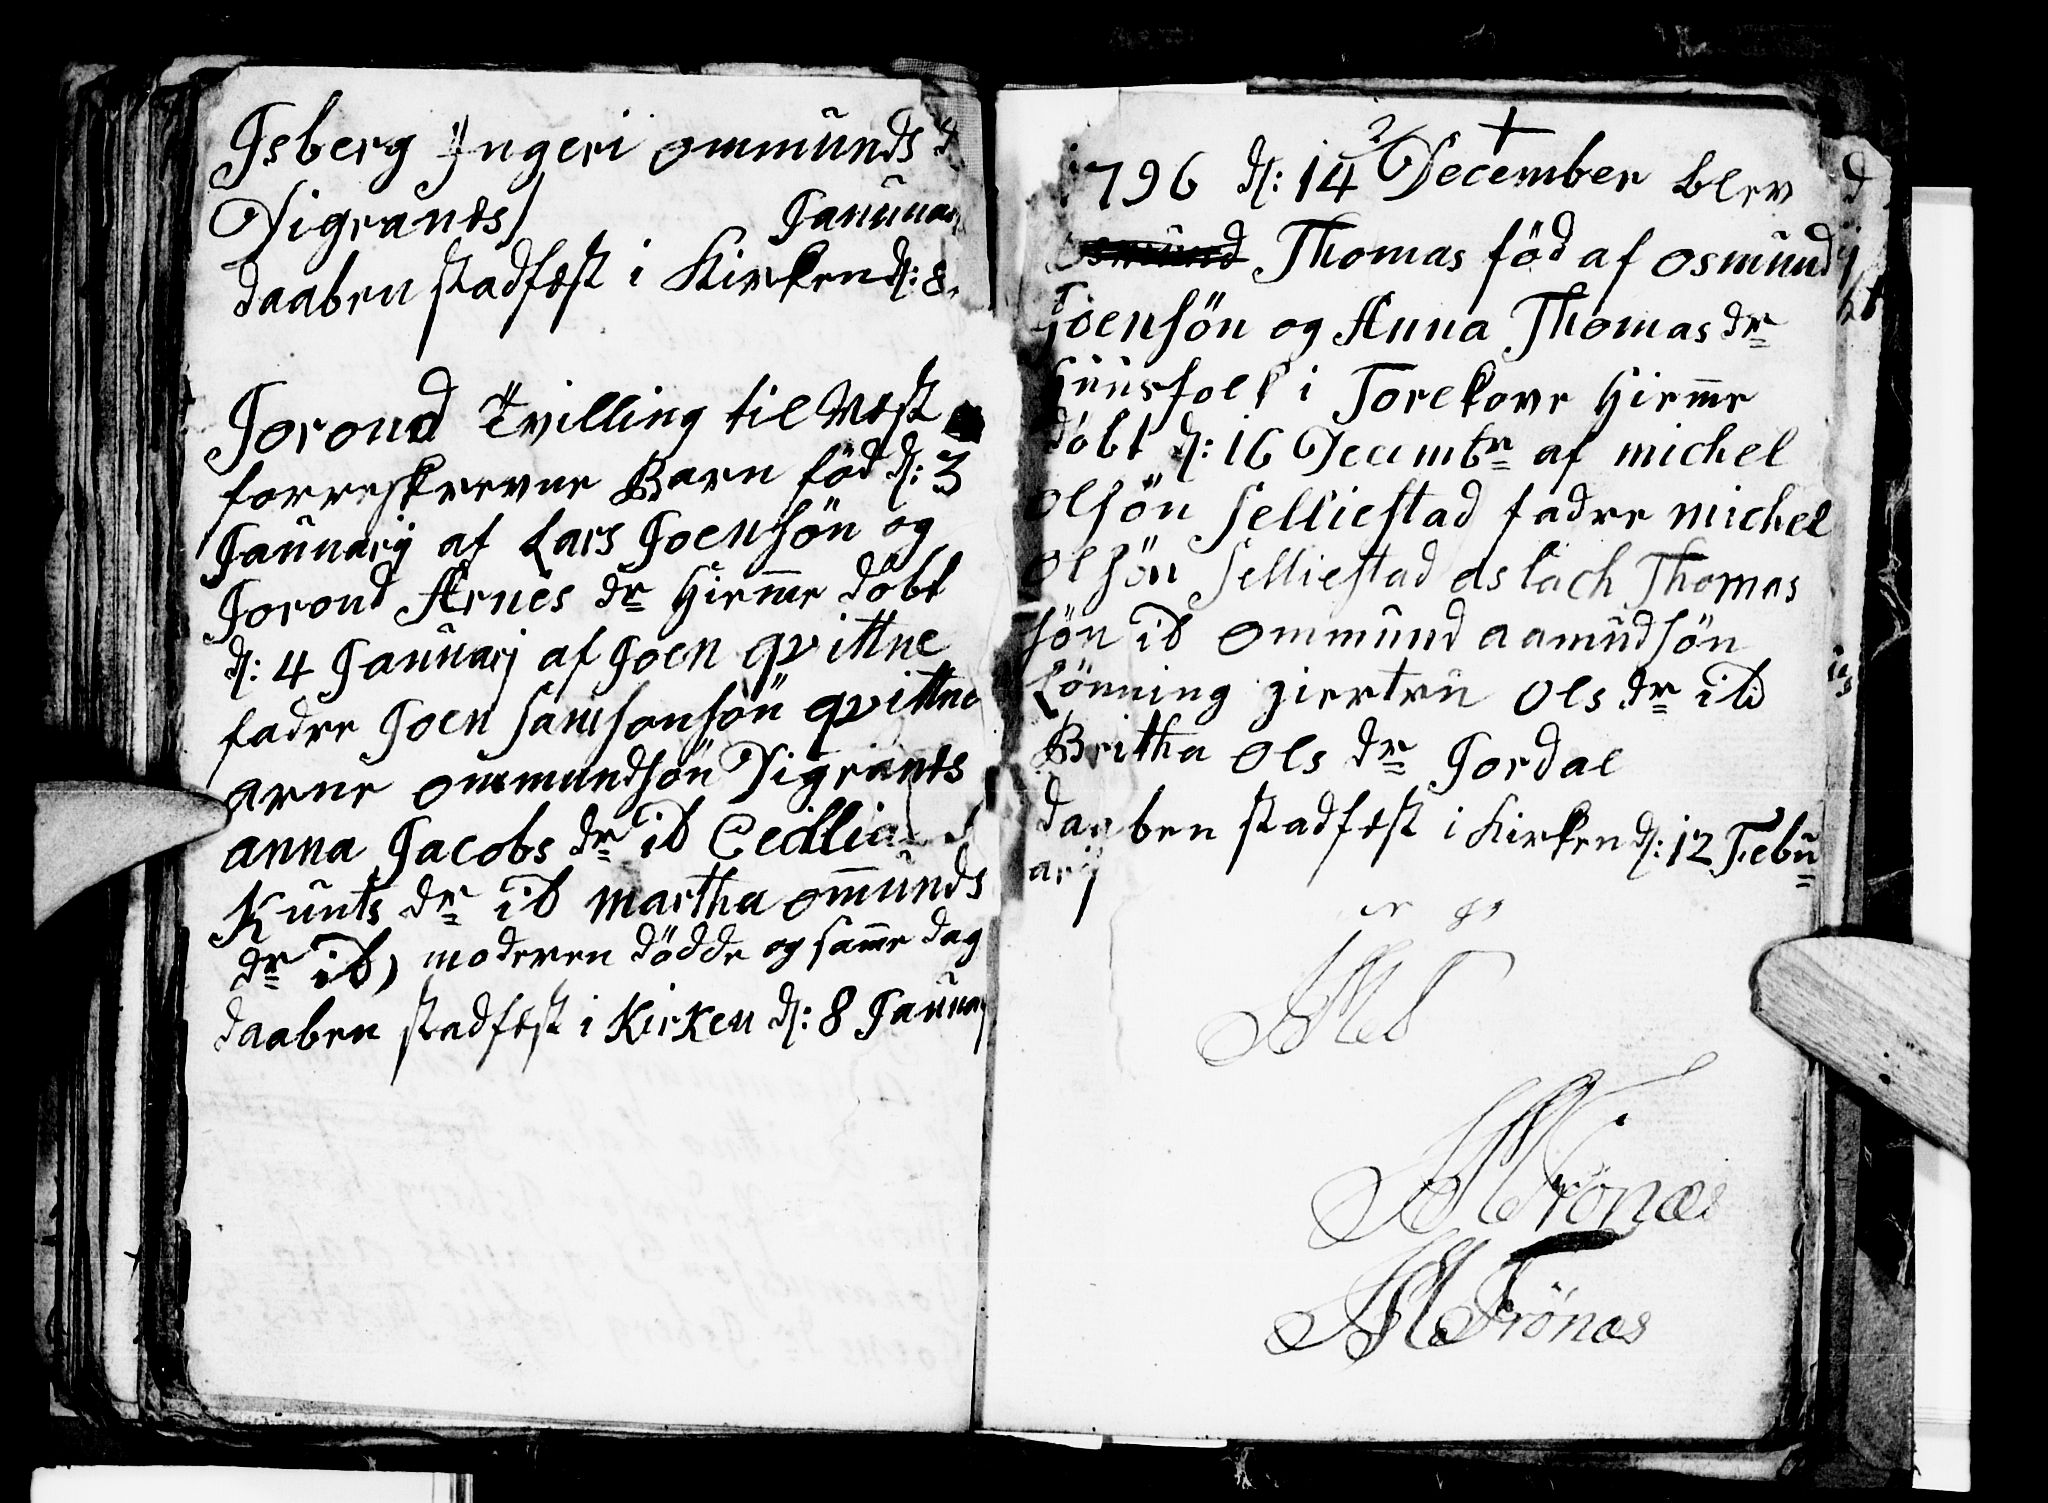 Isberg Ingeri ommunds d
Vigrants)
Januuar
daaben stadfest i Kirken d: 8
Jorond Tvilling til Nest
forreskrevne Barn föd d: 3
Januarij af Lars Joensön og
Jorond Arnes dr Hiemme döbt
d: 4 Januarj af Joen qvittne
fadre Joen Samsonsön qvittne
arne ommundsön Vigrants
anna Jacobs dr ib Cecillia
Kunts dr ib martha omunds
dr ib) moderen dödde og samme dag
daaben stadfest i Kirken d: 8 Januar
2/ +
1796 d: 14 December blev
Osmund Thomas föd af osmund
Joensön og Anna Thomas dr
Huusfolk i Torekove Hieme
döbt d: 16 Decembr af michel
olsön Selliestad fadre michel
olsön Selliestad aslach Thomas
sön ib ommund aamudsön
Lönning giertru ols dr ib
Britha ols dr Jordal
daaben stadfest i Kirken d: 12 Febu
arij
AM Trönæs
AM Trönæs